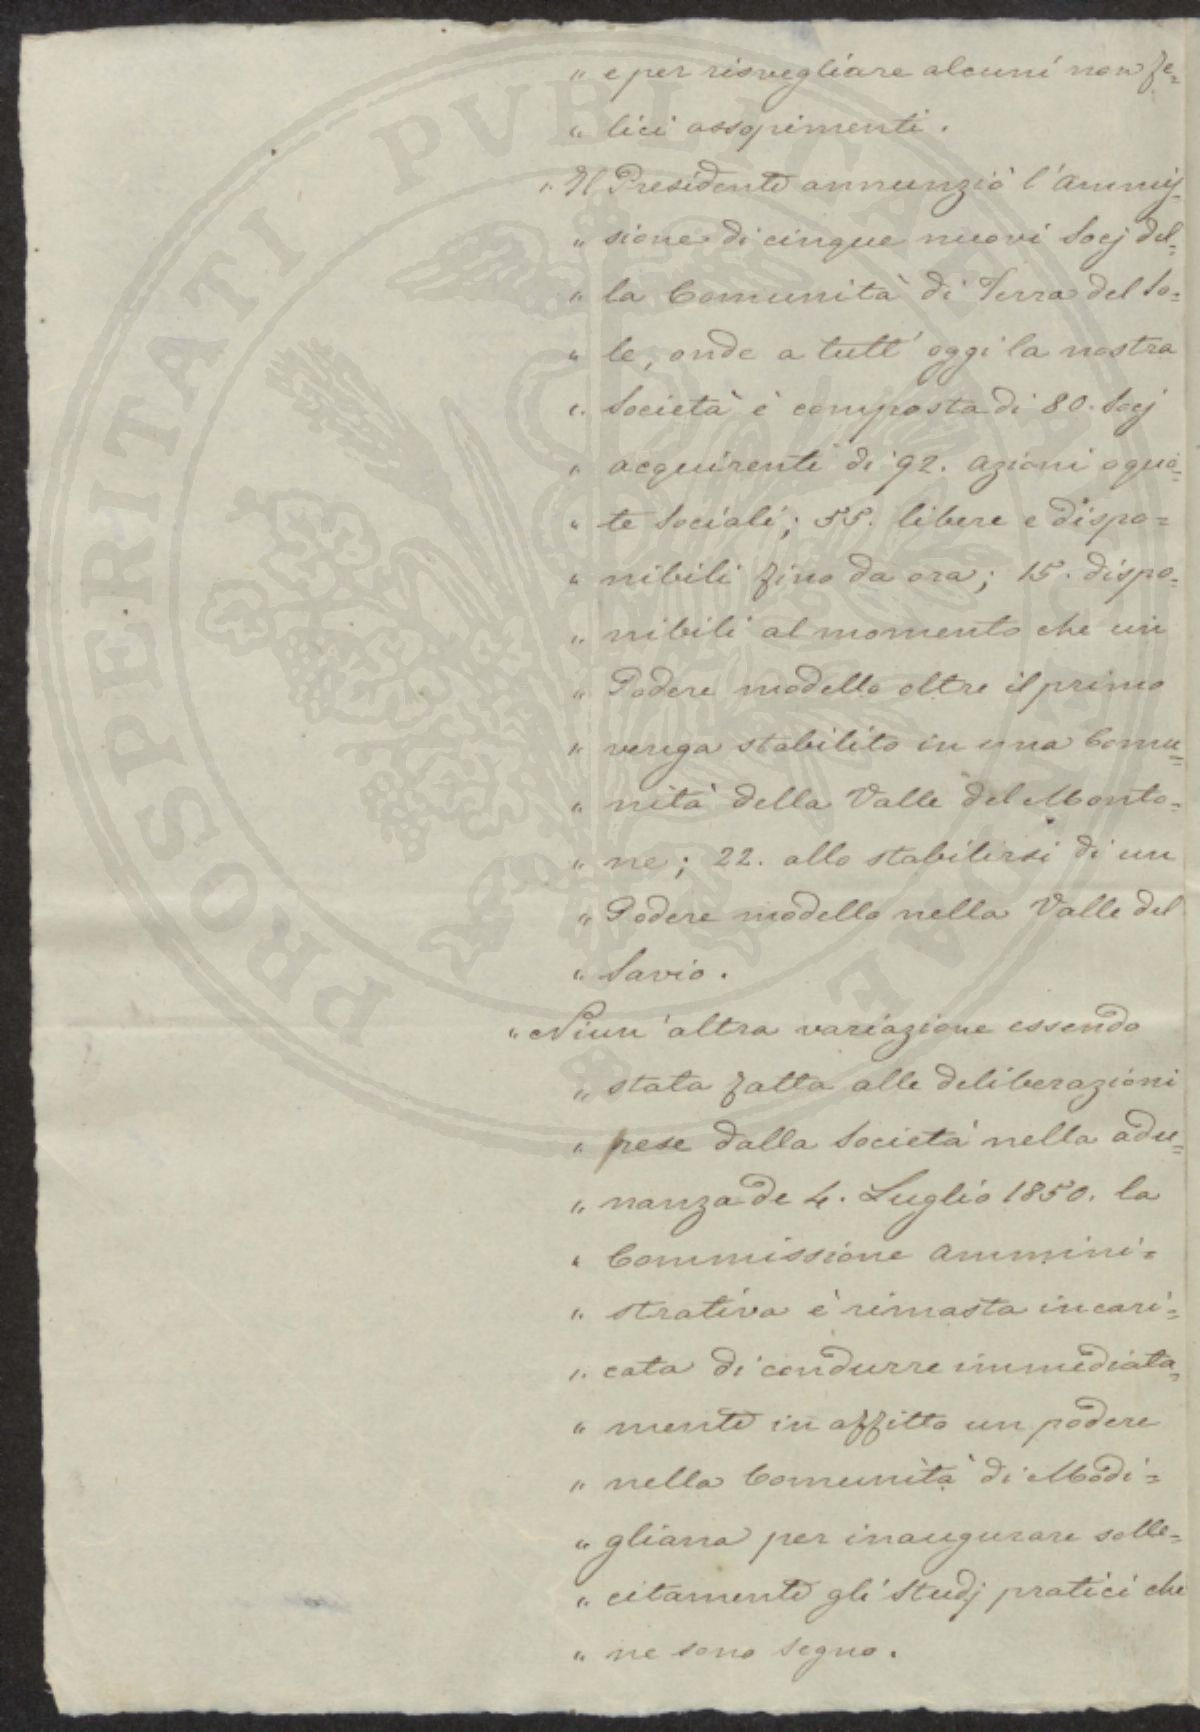 " e per risvegliare alcuni non fe=
" lici assopimenti.
" Il Presidente annunziò l'Ammis=
" sione di cinque nuovi Socj del=
" la Comunità di Terra del So=
" le, onde a tutt'oggi la nostra
" Società è composta di 80. Socj
" acquirenti di 92. azioni o quo=
" te Sociali; 55. libere e dispo=
" nibili fino da ora; 15. dispo=
" nibili al momento che un
" Podere modello oltre il primo
" venga stabilito in una Comu=
" nità della Valle del Monto=
" ne; 22. allo stabilirsi di un
" Podere modello nella Valle del
" Savio.
" Niun'altra variazione essendo
" stata fatta alle deliberazioni
" pese dalla Società nella adu=
" nanza de 4. Luglio 1850. la
" Commissione Ammini=
" strativa è rimasta incari=
" cata di condurre immediata=
" mente in affitto un podere
" nella Comunità di Modi=
" gliana per inaugurare solle=
" citamente gli Studj pratici che
" ne sono segno.
PROSPERITATI PVBLICAE AVGENDAE